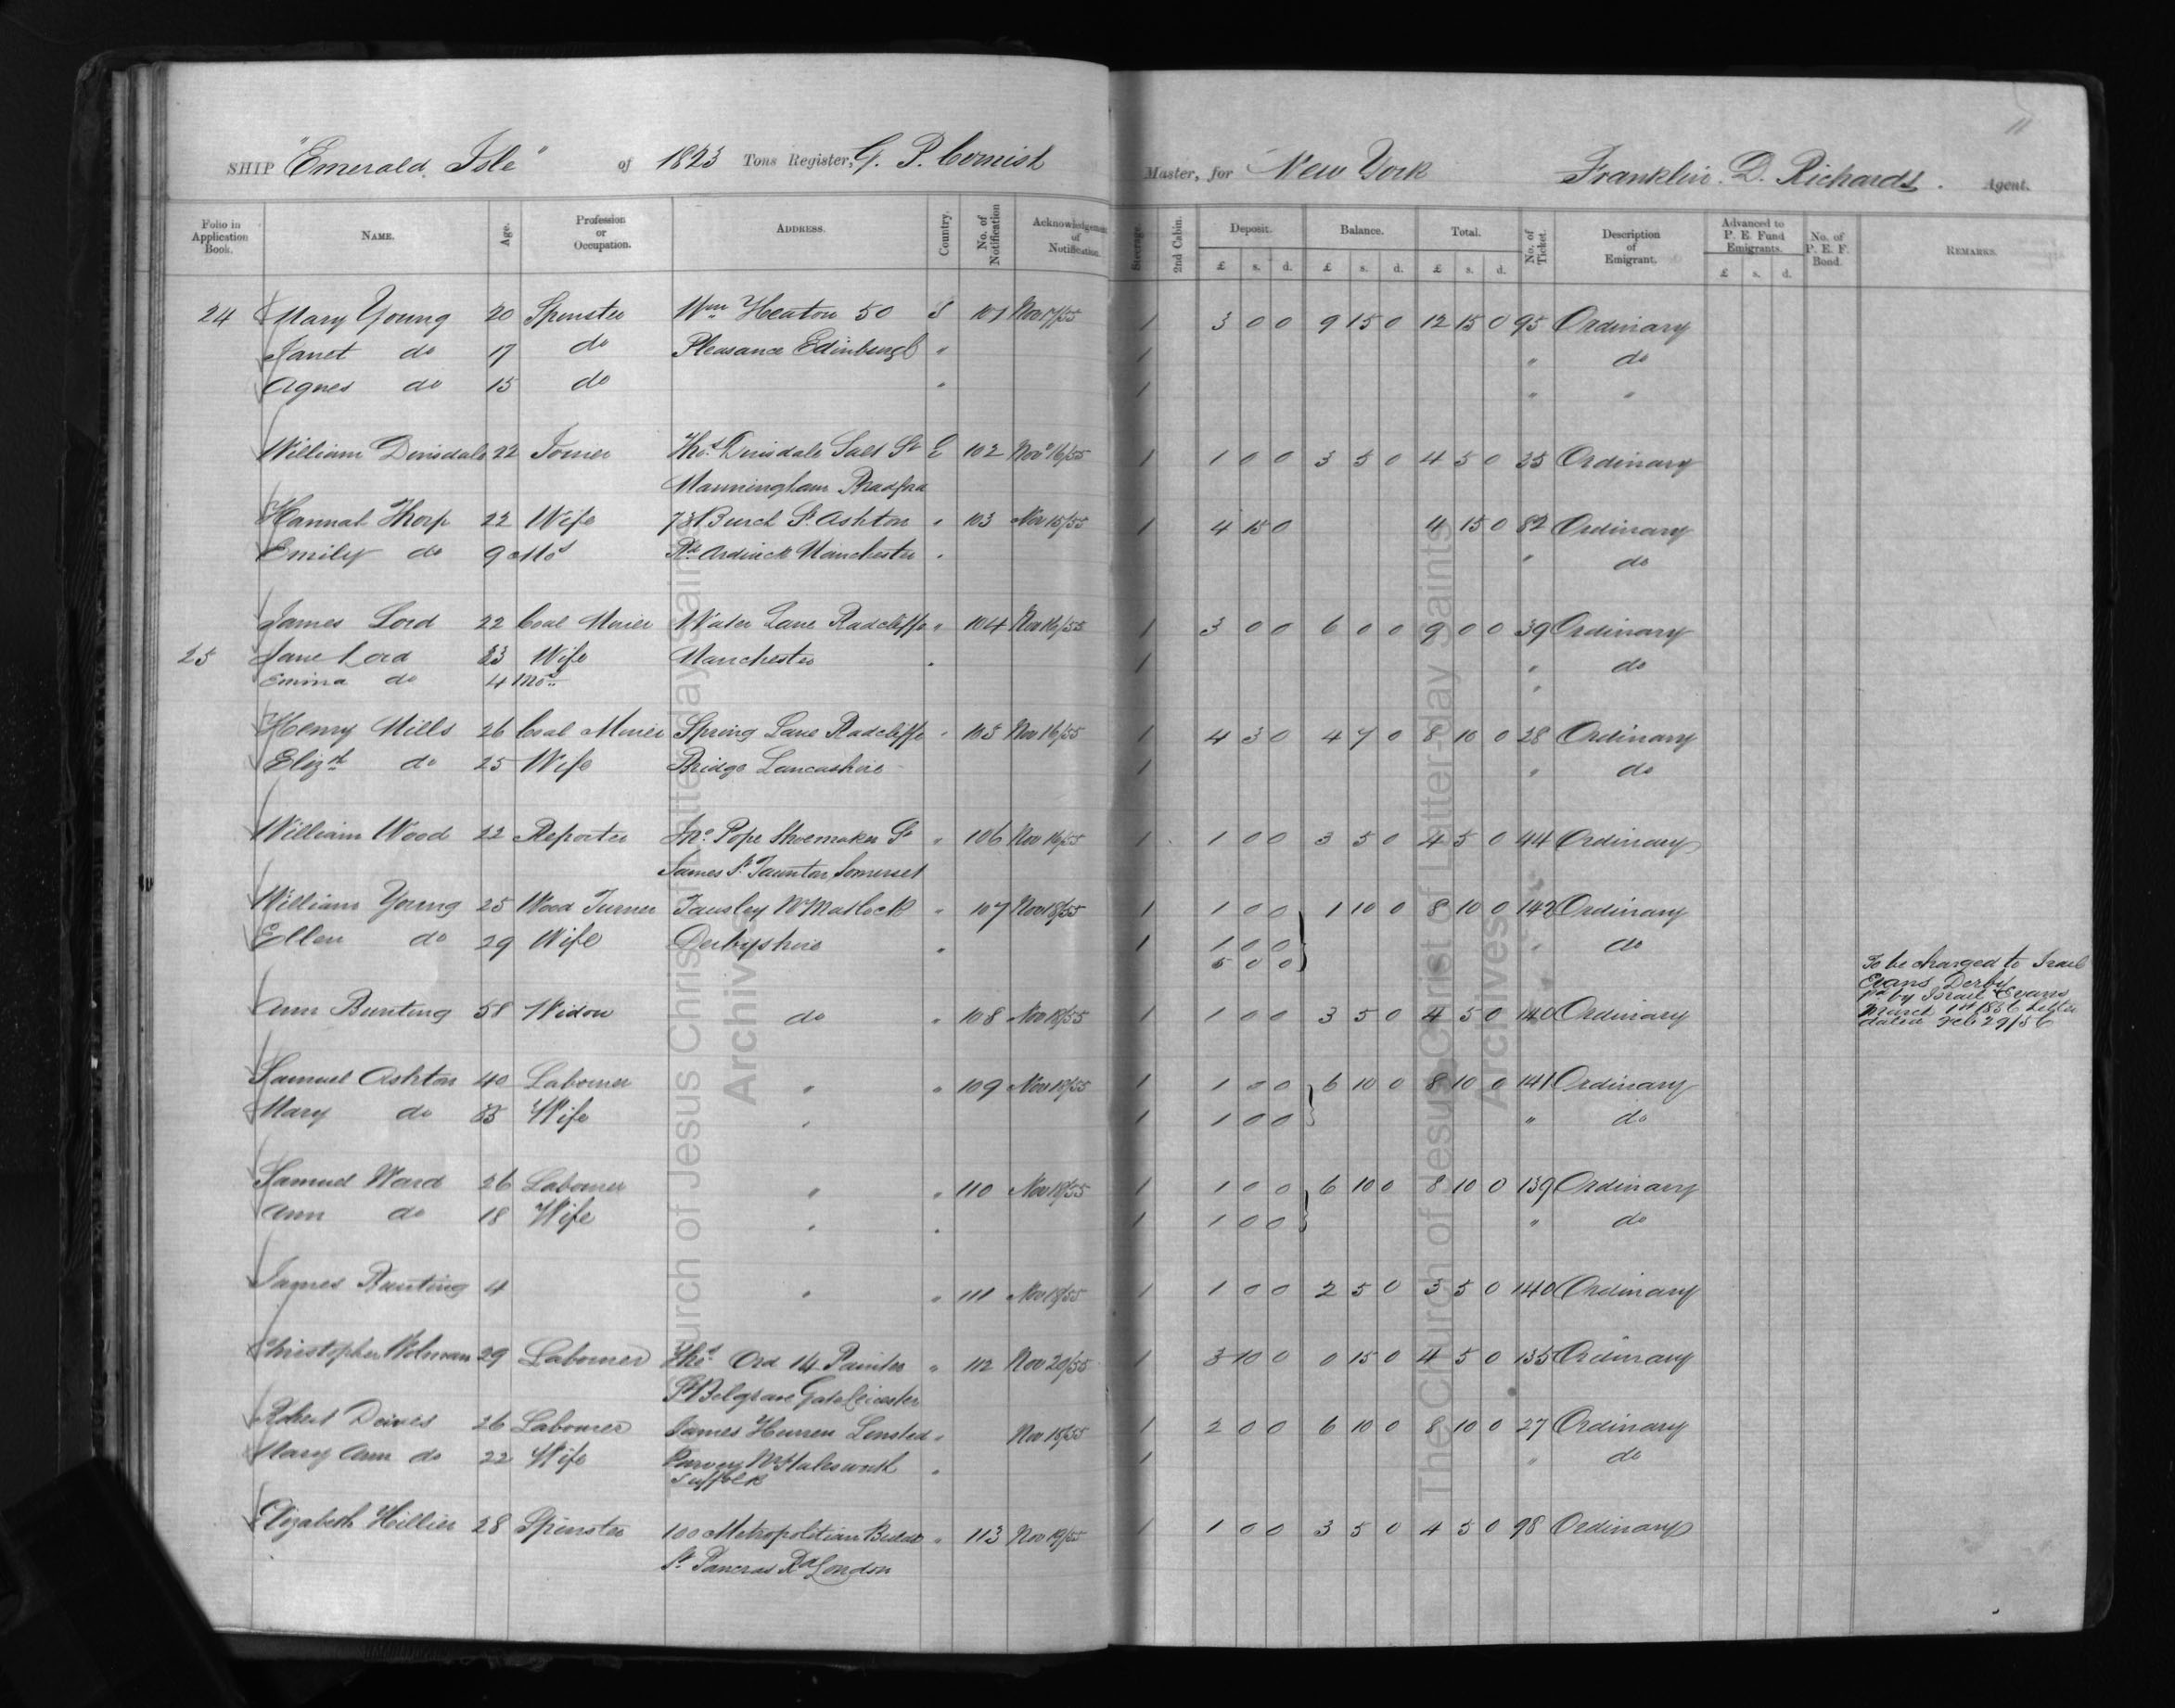 11
SHIP "Emerald Isle" of 1823 Tons Register, G. P. Cornish Master, for New York Franklin. D. Richards. Agent.
Folio in Application Book. NAME. Age. Profession or Occupation. ADDRESS. Country. No. of Notification Acknowledgement of Notification. Steerage. 2nd Cabin. Deposit. Balance. Total. No. of Ticket. Description of Emigrant. Advanced to P. E. Fund Emigrants. No. of P. E. F. Bond. REMARKS.
£ s. d. £ s. d. £ s. d. £ s. d.
24 Mary Young 20 Spinster Wm Heaton 50 S 101 Nov 17/55 1 3 0 0 9 15 0 12 15 0 95 Ordinary
Janet do 17 do Pleasance Edinburgh " 1 " do
Agnes do 15 do " 1 " "
William Dinsdale 22 Joiner Thos Dinsdale Salt St E 102 Nov 16/55 1 1 0 0 3 5 0 4 5 0 35 Ordinary
Manningham Bradford
Hannah Thorp 22 Wife 73 Burch St Ashton " 103 Nov 15/55 1 4 15 0 4 15 0 82 Ordinary
Emily do 9 Mos Rd Ardwick Manchester " " do
James Lord 22 Coal Miner Water Lane Radcliffe " 104 Nov 16/55 1 3 0 0 6 0 0 9 0 0 39 Ordinary
25 Jane Lord 23 Wife Manchester " 1 " do
Emma do 4 Mos "
Henry Mills 26 Coal Miner Spring Lane Radcliffe " 105 Nov 16/55 1 4 3 0 4 7 0 8 10 0 28 Ordinary
Elizth do 25 Wife Bridge Lancashire 1 " do
William Wood 22 Reporter Jno. Pope Shoemaker St " 106 Nov 16/55 1 1 0 0 3 5 0 4 5 0 44 Ordinary
James St Taunton Somerset
William Young 25 Wood Turner Tansley Nr Matlock " 107 Nov 18/55 1 1 0 0 1 10 0 8 10 0 142 Ordinary
Ellen do 29 Wife Derbyshire " 1 1 0 0 " do
5 0 0
To be charged to Israel
Evans Derby
pd by Israel Evans
Ann Bunting 58 Widow do " 108 Nov 18/55 1 1 0 0 3 5 0 4 5 0 140 Ordinary March 1st 1856 Letter
dated Feb 29/56
Samuel Ashton 40 Laborer " " 109 Nov 18/55 1 1 0 0 6 10 0 8 10 0 141 Ordinary
Mary do Wife " 1 1 0 0 " do
Samuel Ward 26 Laborer " " 110 Nov 18/55 1 1 0 0 6 10 0 8 10 0 139 Ordinary
Ann do 18 Wife " " 1 1 0 0 " do
James Bunting 4 " " 111 Nov 18/55 1 1 0 0 2 5 0 3 5 0 140 Ordinary
Christopher 29 Laborer Thos Ord 14 Painter " 112 Nov 20/55 1 3 10 0 0 15 0 4 5 0 135 Ordinary
St Belgrave Gate Leicester
Robert 26 Laborer James " Nov 15/55 1 2 0 0 6 10 0 8 10 0 27 Ordinary
Mary Ann do 22 Wife Nr Halesworth " 1 " do
Suffolk
Elizabeth Hillier 28 Spinster 100 Metropolitian Build " 113 Nov 19/55 1 1 0 0 3 5 0 4 5 0 98 Ordinary
St Pancras Rd London
The Church of Jesus Christ of Latter-day Saints
Archives